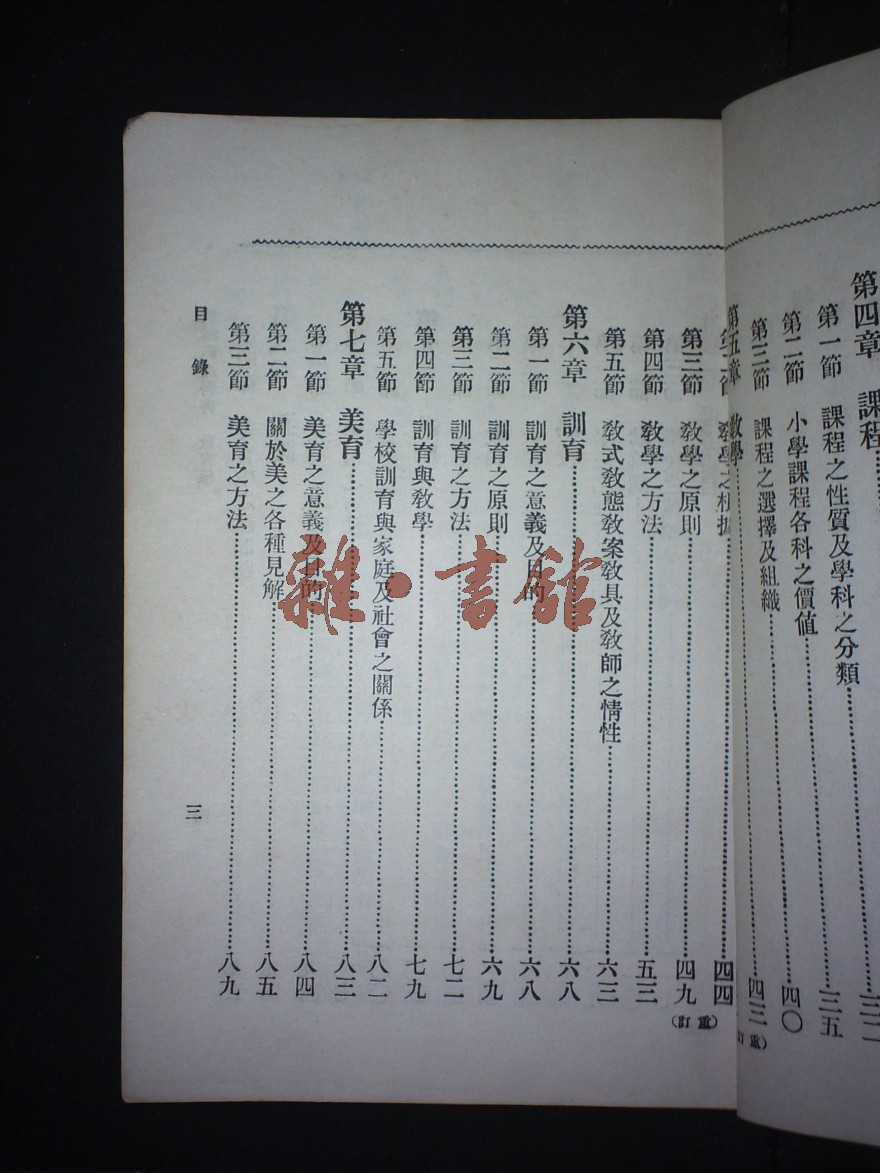 第四章 課程
第一節 課程之性質及學科之分類 三五
第二節 小學課程各科之價值 四〇
第三節 課程之選擇及組織 四三
第五章 教學 四四
教學之根據
第三節 教學之原則 四九
(重訂)
第四節 教學之方法 五三
第五節 教式教態教案教具及教師之情性 六三
第六章 訓育 六八
第一節 訓育之意義及目的 六八
第二節 訓育之原則 六九
第三節 訓育之方法 七二
第四節 訓育與教學 七九
第五節 學校訓育與家庭及社會之關係 八二
第七章 美育 八三
第一節 美育之意義及目的 八四
第二節 關於美之各種見解 八五
第三節 美育之方法 八九
目錄
三
雜·書館